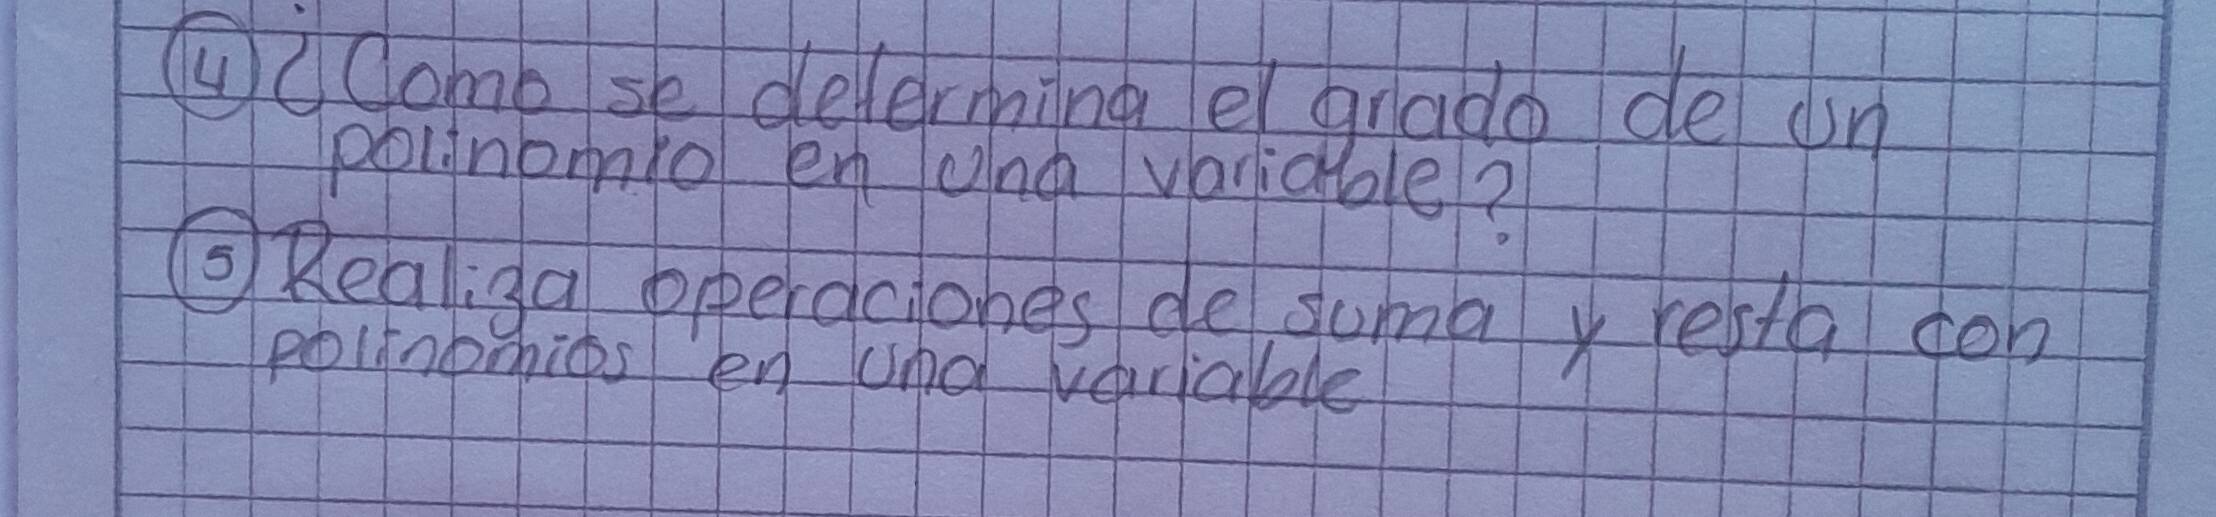 4 ¿Como se determina el grado de un
polinomio en una variable?
5 Realiza operaciones de suma y resta con
polinomios en una variable